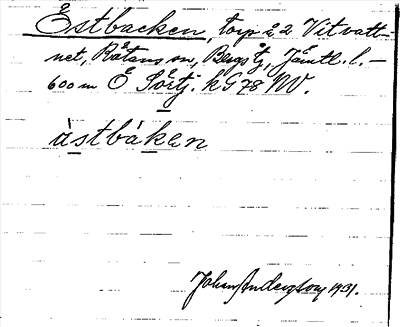 Estbacken, torp å 2 Vitvatt-
net, Råtans sn, Bergs tg, Jämtl. l. –
600 m Ö Sörtj. k G 78 NV.
àstbáken
Johan Anderson 1931.